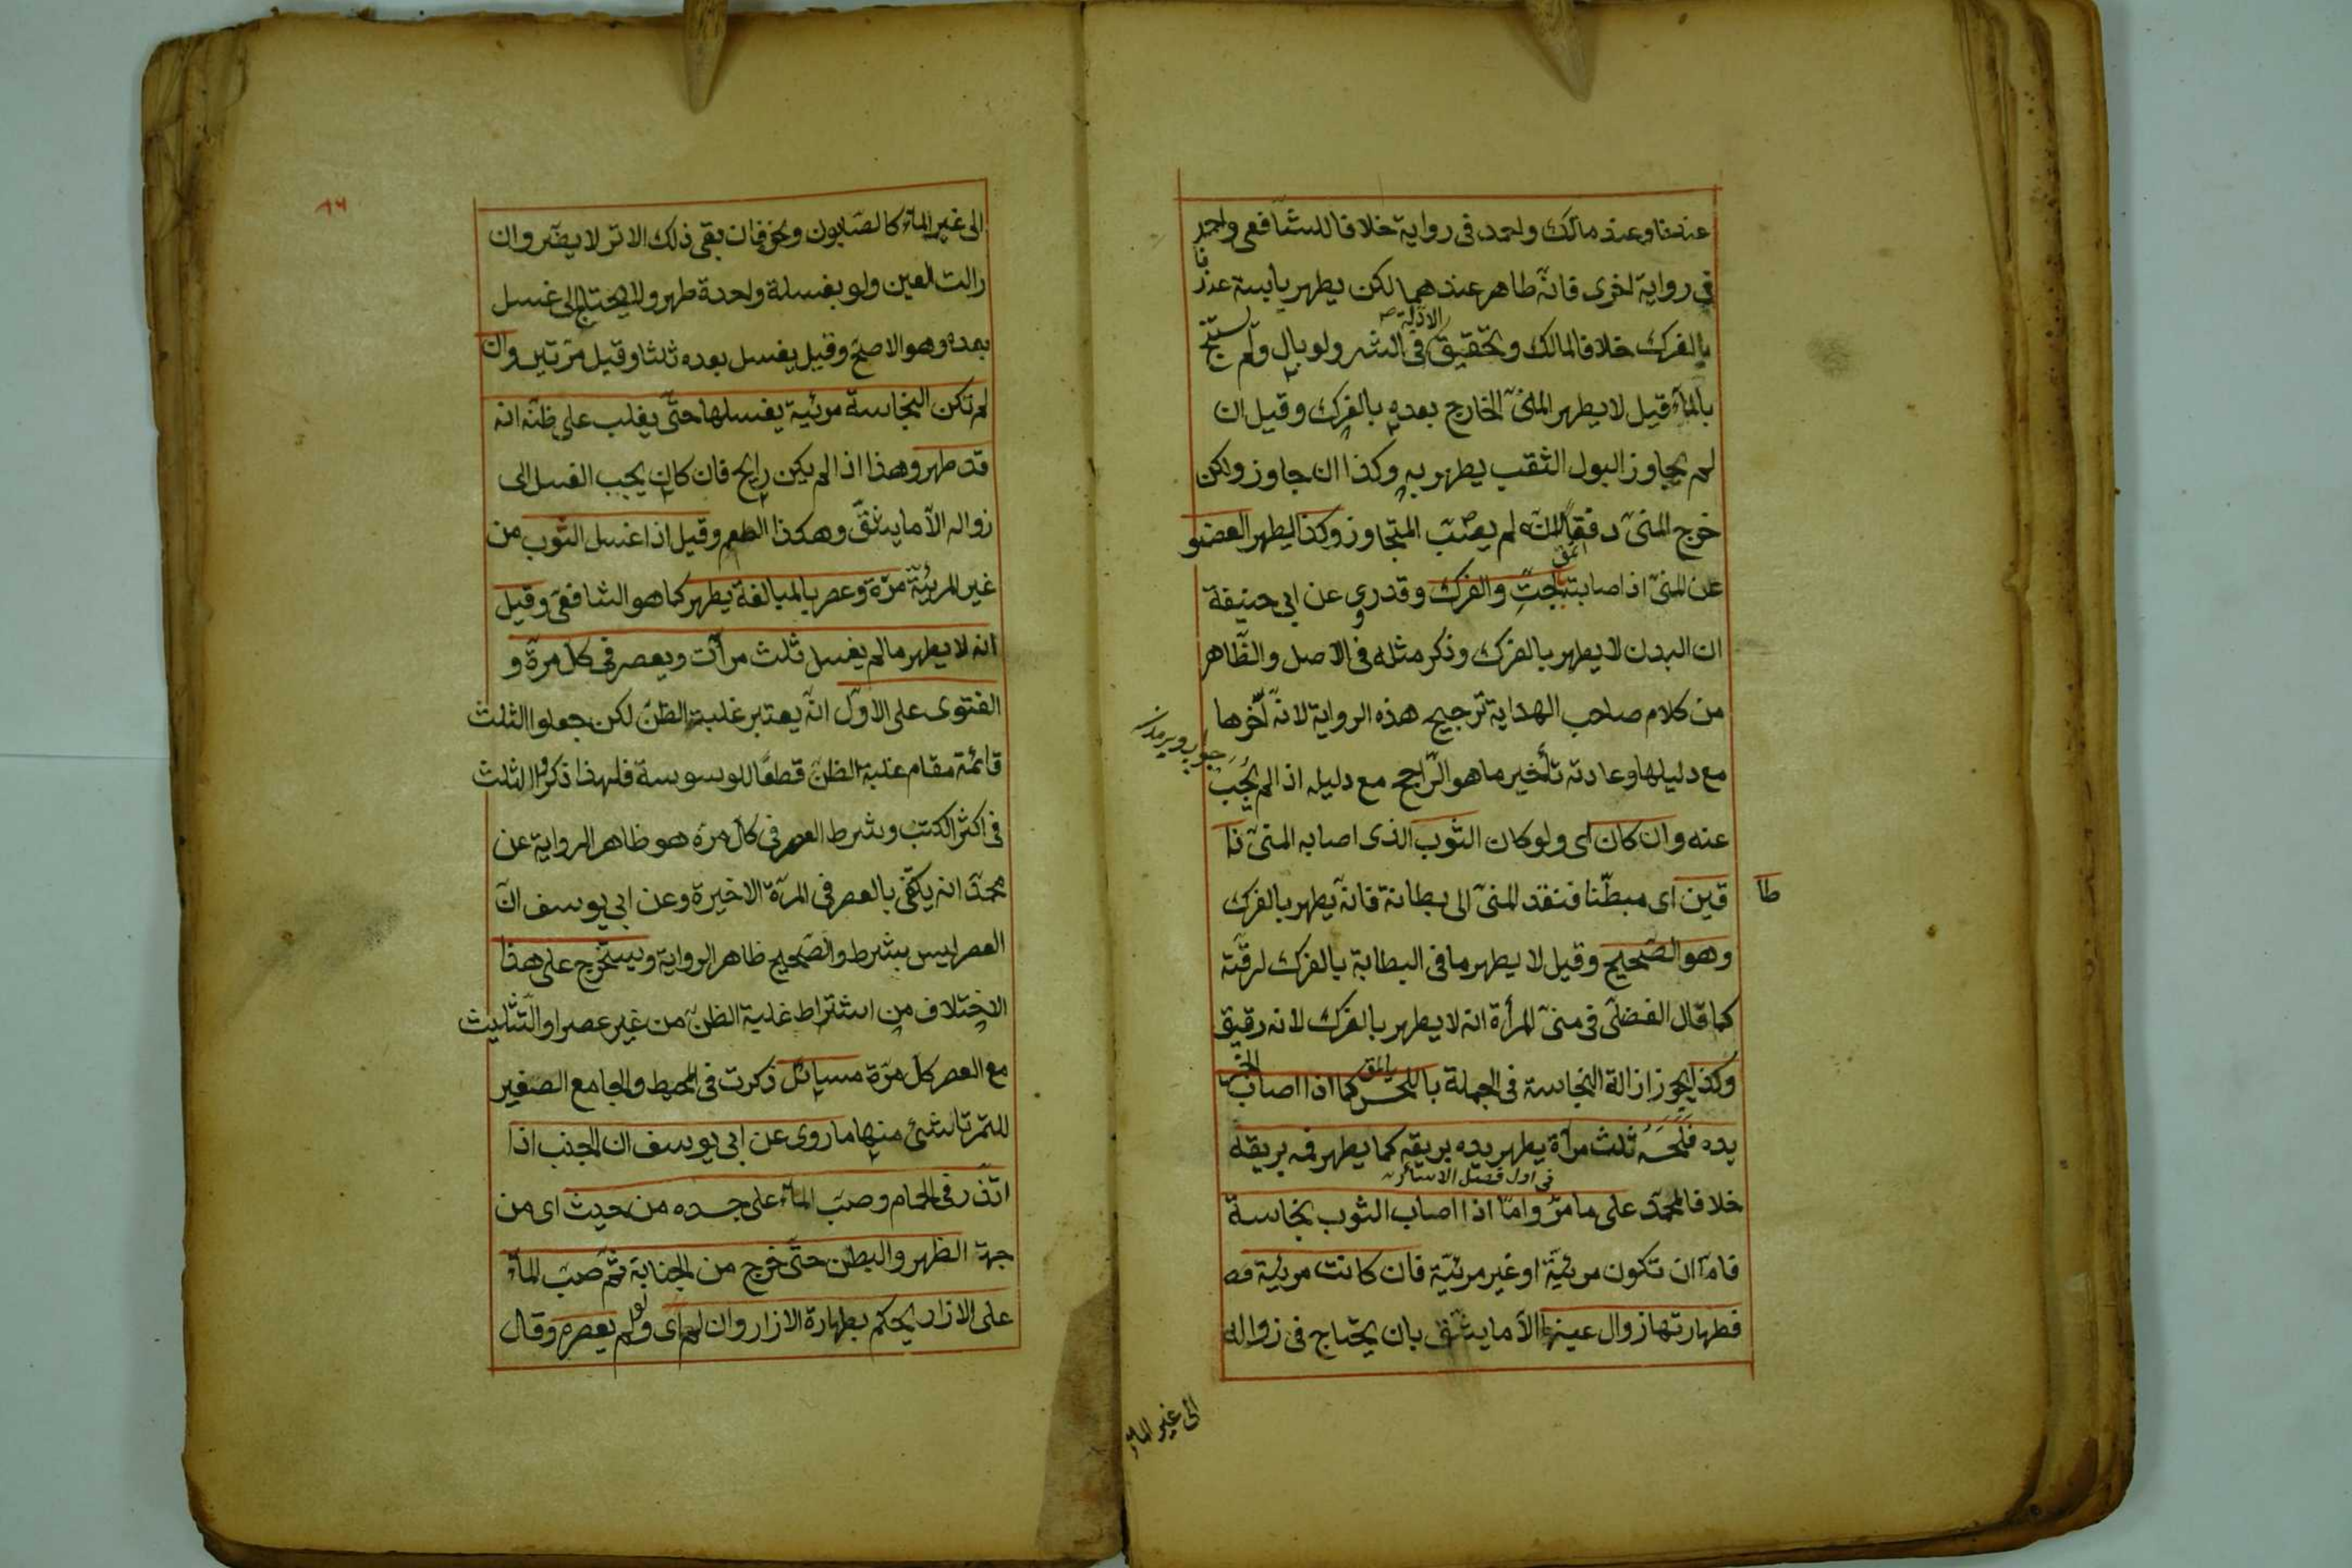 عندنا وعند مالك واحمد فى رواية خلافا للشافعى واحمد
فى رواية اخرى فانه طاهر عندهما لكن يطهر يابسه عندنا
بالفرك خلافا لمالك وتحقيق الادلة فى الشرح ولو بال ولم يستنج
بالماء قيل لا يطهر المنى الخارج بعده بالفرك وقيل ان
لم يجاوز البول الثقب يطهر به وكذا ان جاوز ولكن
خرج المنى دفقا لانه لم يصب المتجاوز وكذا يطهر العضو
عن المنى اذا اصابته بالحت والفرك وقد روى عن ابى حنيفة
ان البدن لا يطهر بالفرك وذكر مثله فى الاصل والظاهر
من كلام صاحب الهداية ترجيح هذه الرواية لانه اخرها
مع دليلها وعادته تأخير ما هو الراجح مع دليله اذا لم يجب
عنه وان كان اى ولو كان الثوب الذى اصابه المنى ذا
طا
قين اى مبطنا فنفذ المنى الى بطانة فانه يطهر بالفرك
وهو الصحيح وقيل لا يطهر ما فى البطانة بالفرك لرقته
كما قال الفضلى فى منى المرأة انه لا يطهر بالفرك لانه رقيق
وكذا يجوز ازالة النجاسة فى الجملة باللحس كما اذا اصاب الخمر
يده فلحسه ثلث مرات يطهر يده بريقه كما يطهر فمه بريقه
فى اول فصل الاسآر
خلافا لمحمد على ما مر واما اذا اصاب الثوب نجاسة
فاما ان تكون مرئية او غير مرئية فان كانت مرئية
فطهارتها زوال عينها الا ما يشق بان يحتاج فى زواله
الى غير الماء
الى غير الماء كالصابون ونحوه فان بقى ذلك الاثر لا يضر وان
زالت العين ولو بغسلة واحدة طهر ولا يحتاج الى غسل
بعده وهو الاصح وقيل يغسل بعده ثلثا وقيل مرتين وان
لم تكن النجاسة مرئية يغسلها حتى يغلب على ظنه انه
قد طهر وهذا اذا لم يكن رايح فان كان يجب الغسل الى
زواله الا ما يشق وهكذا الطعم وقيل اذا غسل الثوب من
غير المرئية مرة وعصر بالمبالغة يطهر كما هو الشافعى وقيل
انه لا يطهر ما لم يغسل ثلث مرات ويعصر فى كل مرة و
الفتوى على الاول انه يعتبر غلبة الظن لكن جعلوا الثلث
قائمة مقام غلبة الظن قطعا للوسوسة فلهذا ذكروا الثلث
فى اكثر الكتب وشرط العصر فى كل مرة هو ظاهر الرواية عن
محمد انه يكتفى بالعصر فى المرة الاخيرة وعن ابى يوسف ان
العصر ليس بشرط والصحيح ظاهر الرواية ويستخرج على هذا
الاختلاف من اشتراط غلبة الظن من غير عصر او التثليث
مع العصر كل مرة مسائل ذكرت فى المحيط والجامع الصغير
للتمرتاشى منها ما روى عن ابى يوسف ان الجنب اذا
اتزر فى الحمام وصب الماء على جسده من حيث اى من
جهة الظهر والبطن حتى خرج من الجنابة ثم صب الماء
على الازار يحكم بطهارة الازار وان لم اى ولو لم يعصره وقال